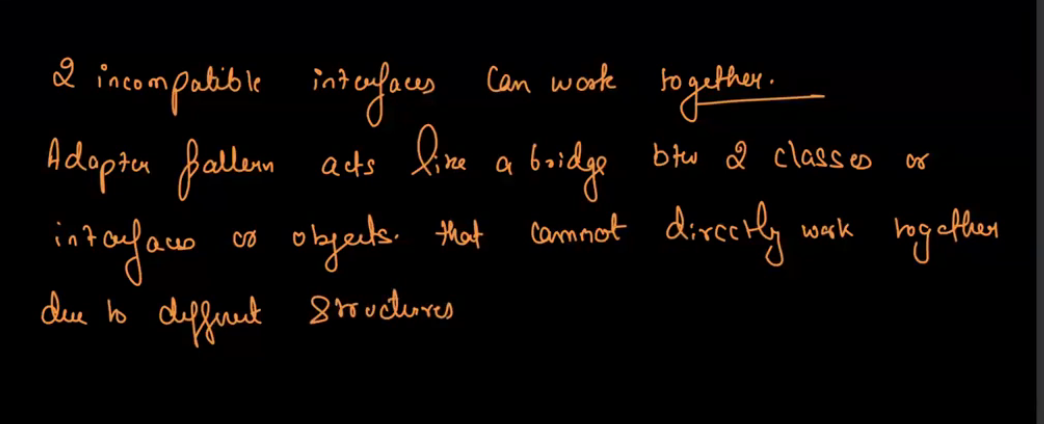 2 incompatible interfaces can work together.
Adapter pattern acts like a bridge btw 2 classes or
interfaces or objects. that cannot directly work together
due to different structures